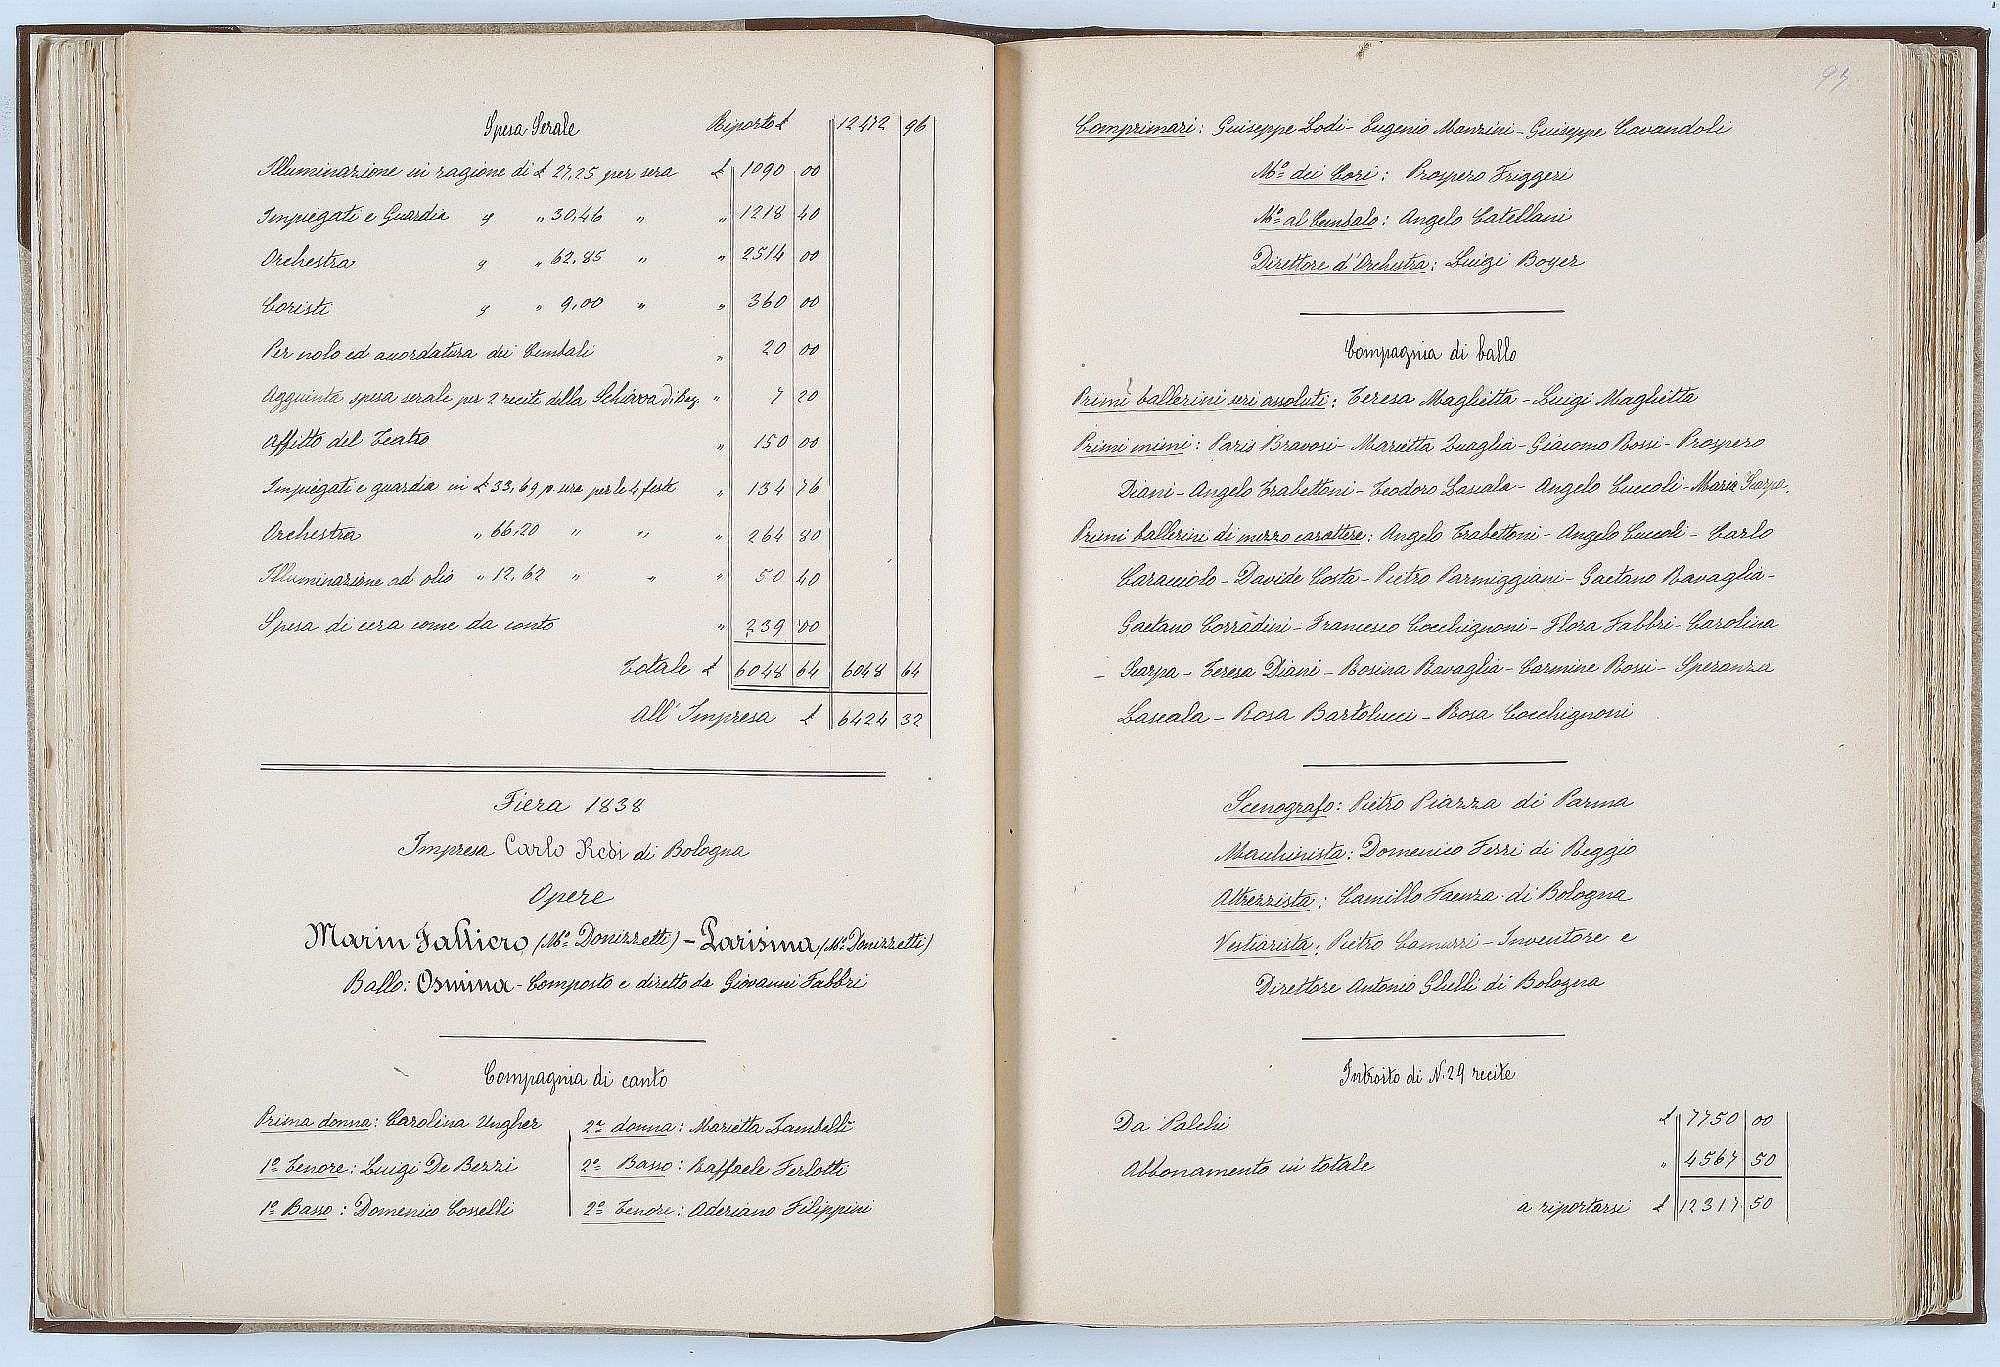 Spesa Serale Riporto £ 12472 96
Illuminazione in ragione di £ 27,25 per sera £ 1090 00
Impiegati e Guardia " " 30,46 " " 1218 40
Orchestra " " 62,85 " " 2514 00
Coristi " " 9,00 " " 360 00
Per nolo ed accordatura dei Cembali " 20 00
Aggiunta spesa serale per 2 recite della Schiava di Beg " 7 20
Affitto del Teatro " 150 00
Impiegati e guardia in £ 33,69 p. una per le 4 feste " 134 76
Orchestra " 66,20 " " " 264 80
Illuminazione ad olio " 12,62 " " " 50 40
Spesa di cera come da conto " 239 00
Totale £ 6048 64 6048 64
All'Impresa £ 6424 32
Fiera 1838
Impresa Carlo Redi di Bologna
Opere
Marin Falliero (Mo. Donizzetti) - Parisina (Mo. Donizzetti)
Ballo: Osmina - Composto e diretto da Giovanni Fabbri
Compagnia di canto
Prima donna: Carolina Ungher
1o Tenore: Luigi De Bezzi
1o Basso: Domenico Cosselli
2a donna: Marietta Zambelli
2o Basso: Raffaele Ferlotti
2o Tenore: Aderiano Filippini
97
Comprimari: Guiseppe Lodi - Eugenio Manzini - Guiseppe Cavandoli
Mo dei Cori: Prospero Friggeri
Mo al Cembalo: Angelo Catellani
Direttore d'Orchestra: Luigi Boyer
Compagnia di ballo
Primi ballerini seri assoluti: Teresa Maglietta - Luigi Maglietta
Primi mimi: Paris Bravosi - Marietta Quaglia - Giacomo Rossi - Prospero
Diani - Angelo Trabettoni - Teodoro Lascala - Angelo Cuccoli - Maria Scarpa.
Primi ballerini di mezzo carattere: Angelo Trabettoni - Angelo Cuccoli - Carlo
Caracciolo - Davide Costa - Pietro Parmiggiani - Gaetano Ravaglia -
Gaetano Corradini - Francesco Cocchignoni - Flora Fabbri - Carolina
Scarpa - Teresa Diani - Rosina Ravaglia - Carmine Rossi - Speranza
Lascala - Rosa Bartolucci - Rosa Cocchignoni
Scenografo: Pietro Piazza di Parma
Macchinista: Domenico Ferri di Reggio
Attrezzista: Camillo Faenza di Bologna
Vestiarista: Pietro Camurri - Inventore e
Direttore Antonio Ghelli di Bologna
Introito di N. 29 recite
Da Palchi £ 7750 00
Abbonamento in totale " 4567 50
a riportarsi £ 12317 50